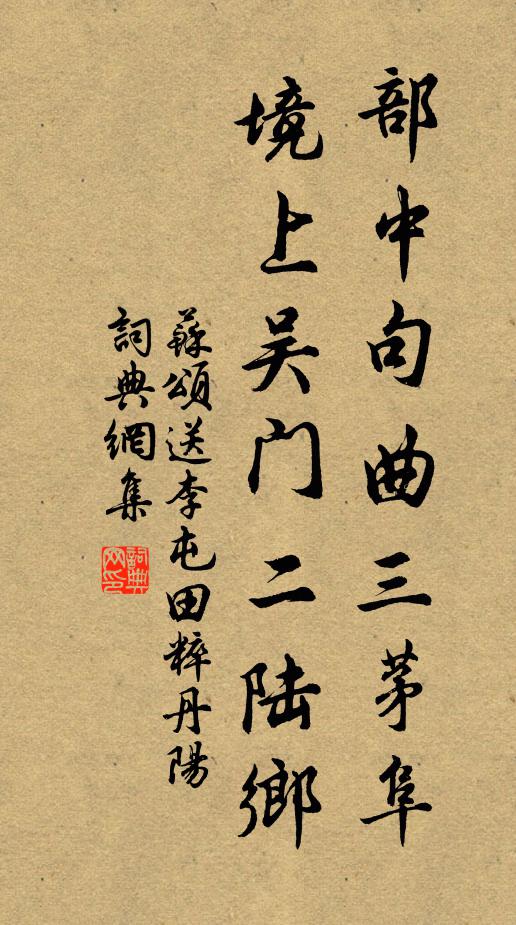 部中句曲三茅阜
境上吴门二陆鄉
蘇頌送李屯田粹丹陽
詞典網集
詞典网印